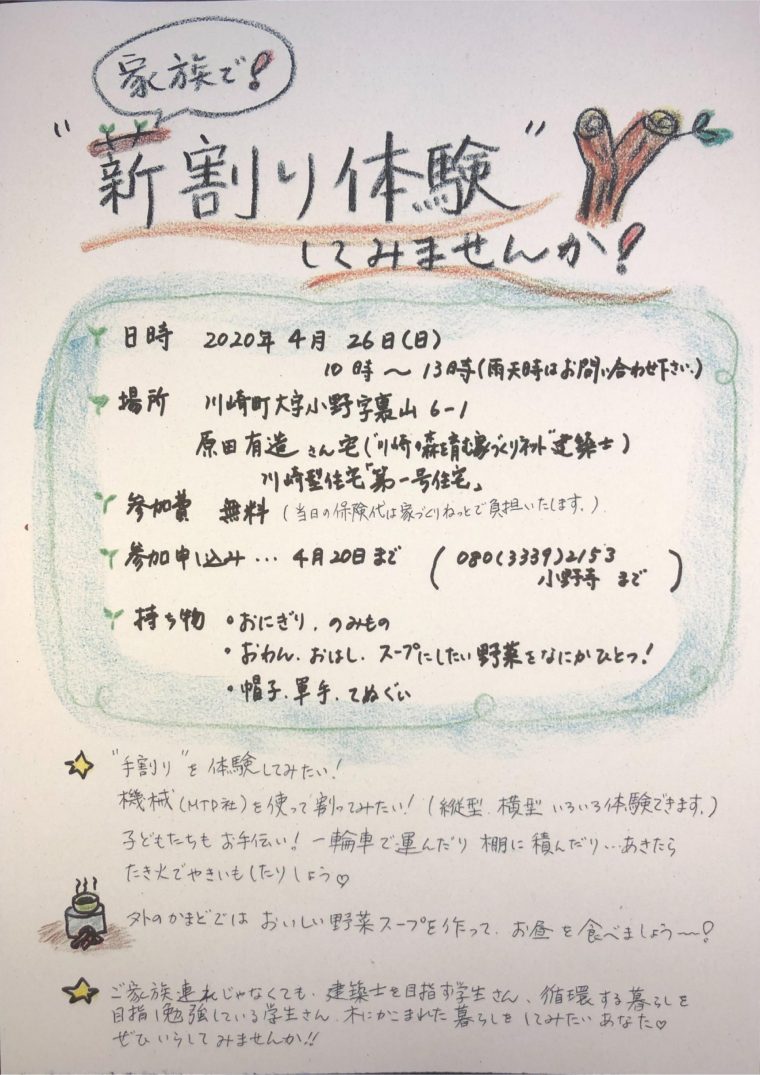 家族で!
"薪割り体験"
してみませんか!
日時 2020年 4月 26日(日)
10時〜13時(雨天時はお問い合わせ下さい.)
場所 川崎町大字小野字裏山 6-1
原田有造さん宅("川崎の森を育む家づくりネット"建築士)
川崎型住宅「第一号住宅」
参加費 無料 (当日の保険代は家づくりねっとで負担いたします.)
参加申し込み… 4月20日まで (080(3339)2153
小野寺 まで)
持ち物 ・おにぎり. のみもの
・おわん. おはし. スープにしたい野菜をなにかひとつ!
・帽子. 軍手. てぬぐい
"手割り"を体験してみたい!
機械(MTD社)を使って割ってみたい! (縦型. 横型 いろいろ体験できます.)
子どもたちも お手伝い! 一輪車で運んだり 棚に積んだり…あきたら
たき火でやきいもしたりしよう♡
外のかまどでは おいしい野菜スープを作って. お昼を食べましょう〜!
ご家族連れじゃなくても. 建築士を目指す学生さん、循環する暮らしを
目指し勉強している学生さん. 木にかこまれた暮らしをしてみたいあなた♡
ぜひいらしてみませんか!!